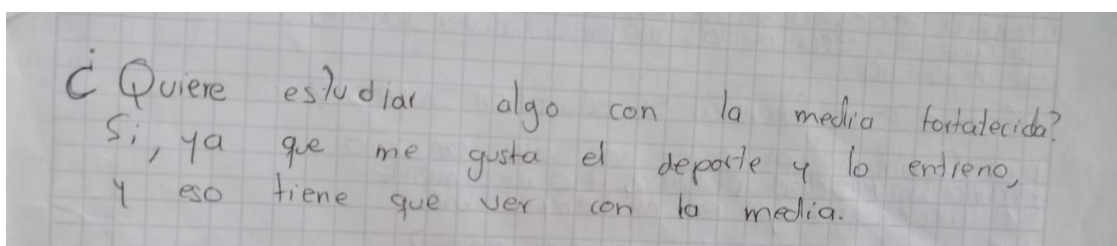 ¿Quiere estudiar algo con la media fortalecida?
Si, ya que me gusta el deporte y lo entreno,
y eso tiene que ver con la media.